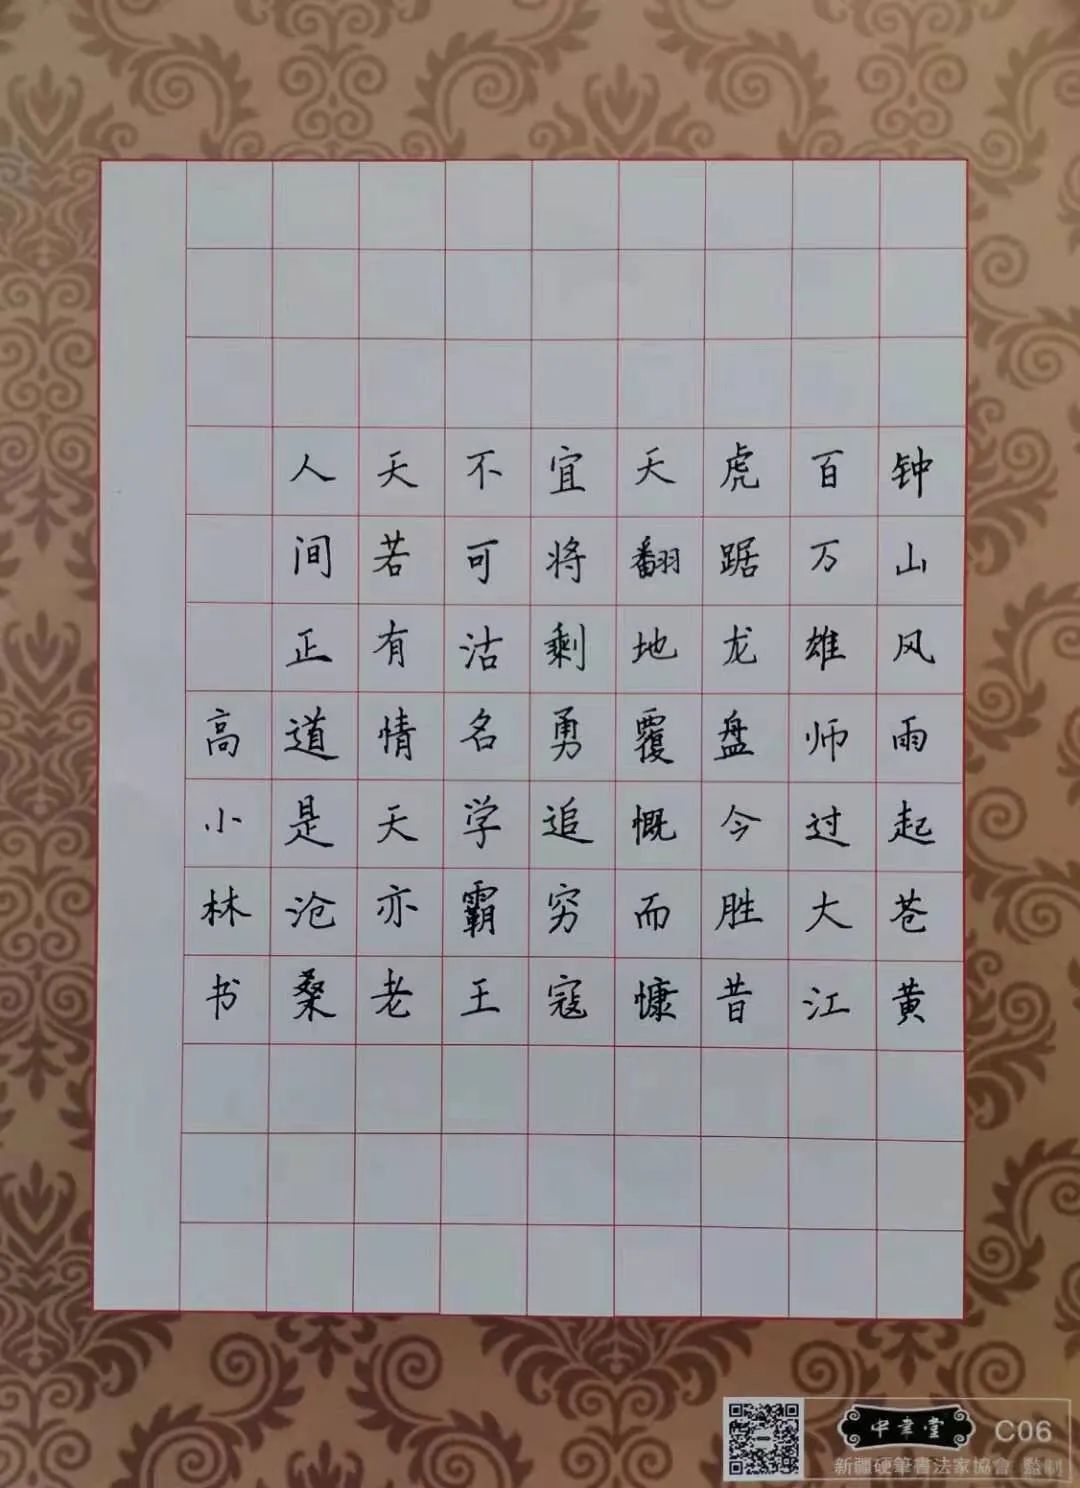 钟山风雨起苍黄
百万雄师过大江
虎踞龙盘今胜昔
天翻地覆慨而慷
宜将剩勇追穷寇
不可沽名学霸王
天若有情天亦老
人间正道是沧桑
高小林书
中幸堂
C06
新疆硬筆書法家協會 監制